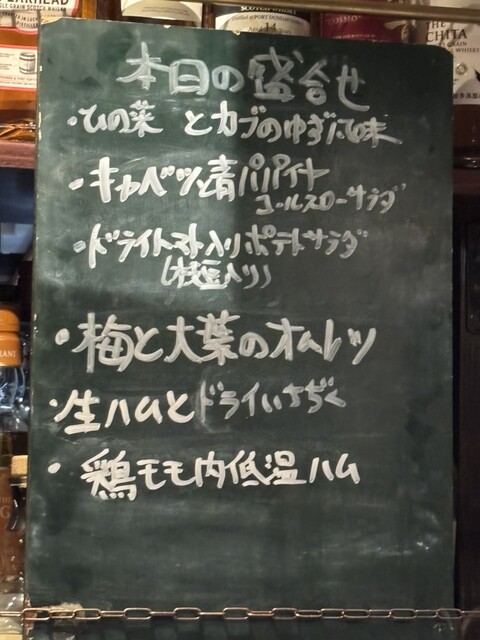 SINGLE GRAIN SCOTCH WHISKY
SCOTCH WHISKY
14
COSMO
THE
CHITA
本日の盛合せ
・ひの菜 とカブのゆず風味
・キャベツと青パパイヤ
コールスローサラダ
・ドライトマト入りポテトサラダ
(枝豆入り)
・梅と大葉のオムレツ
・生ハムとドライいちぢく
・鶏モモ肉低温ハム